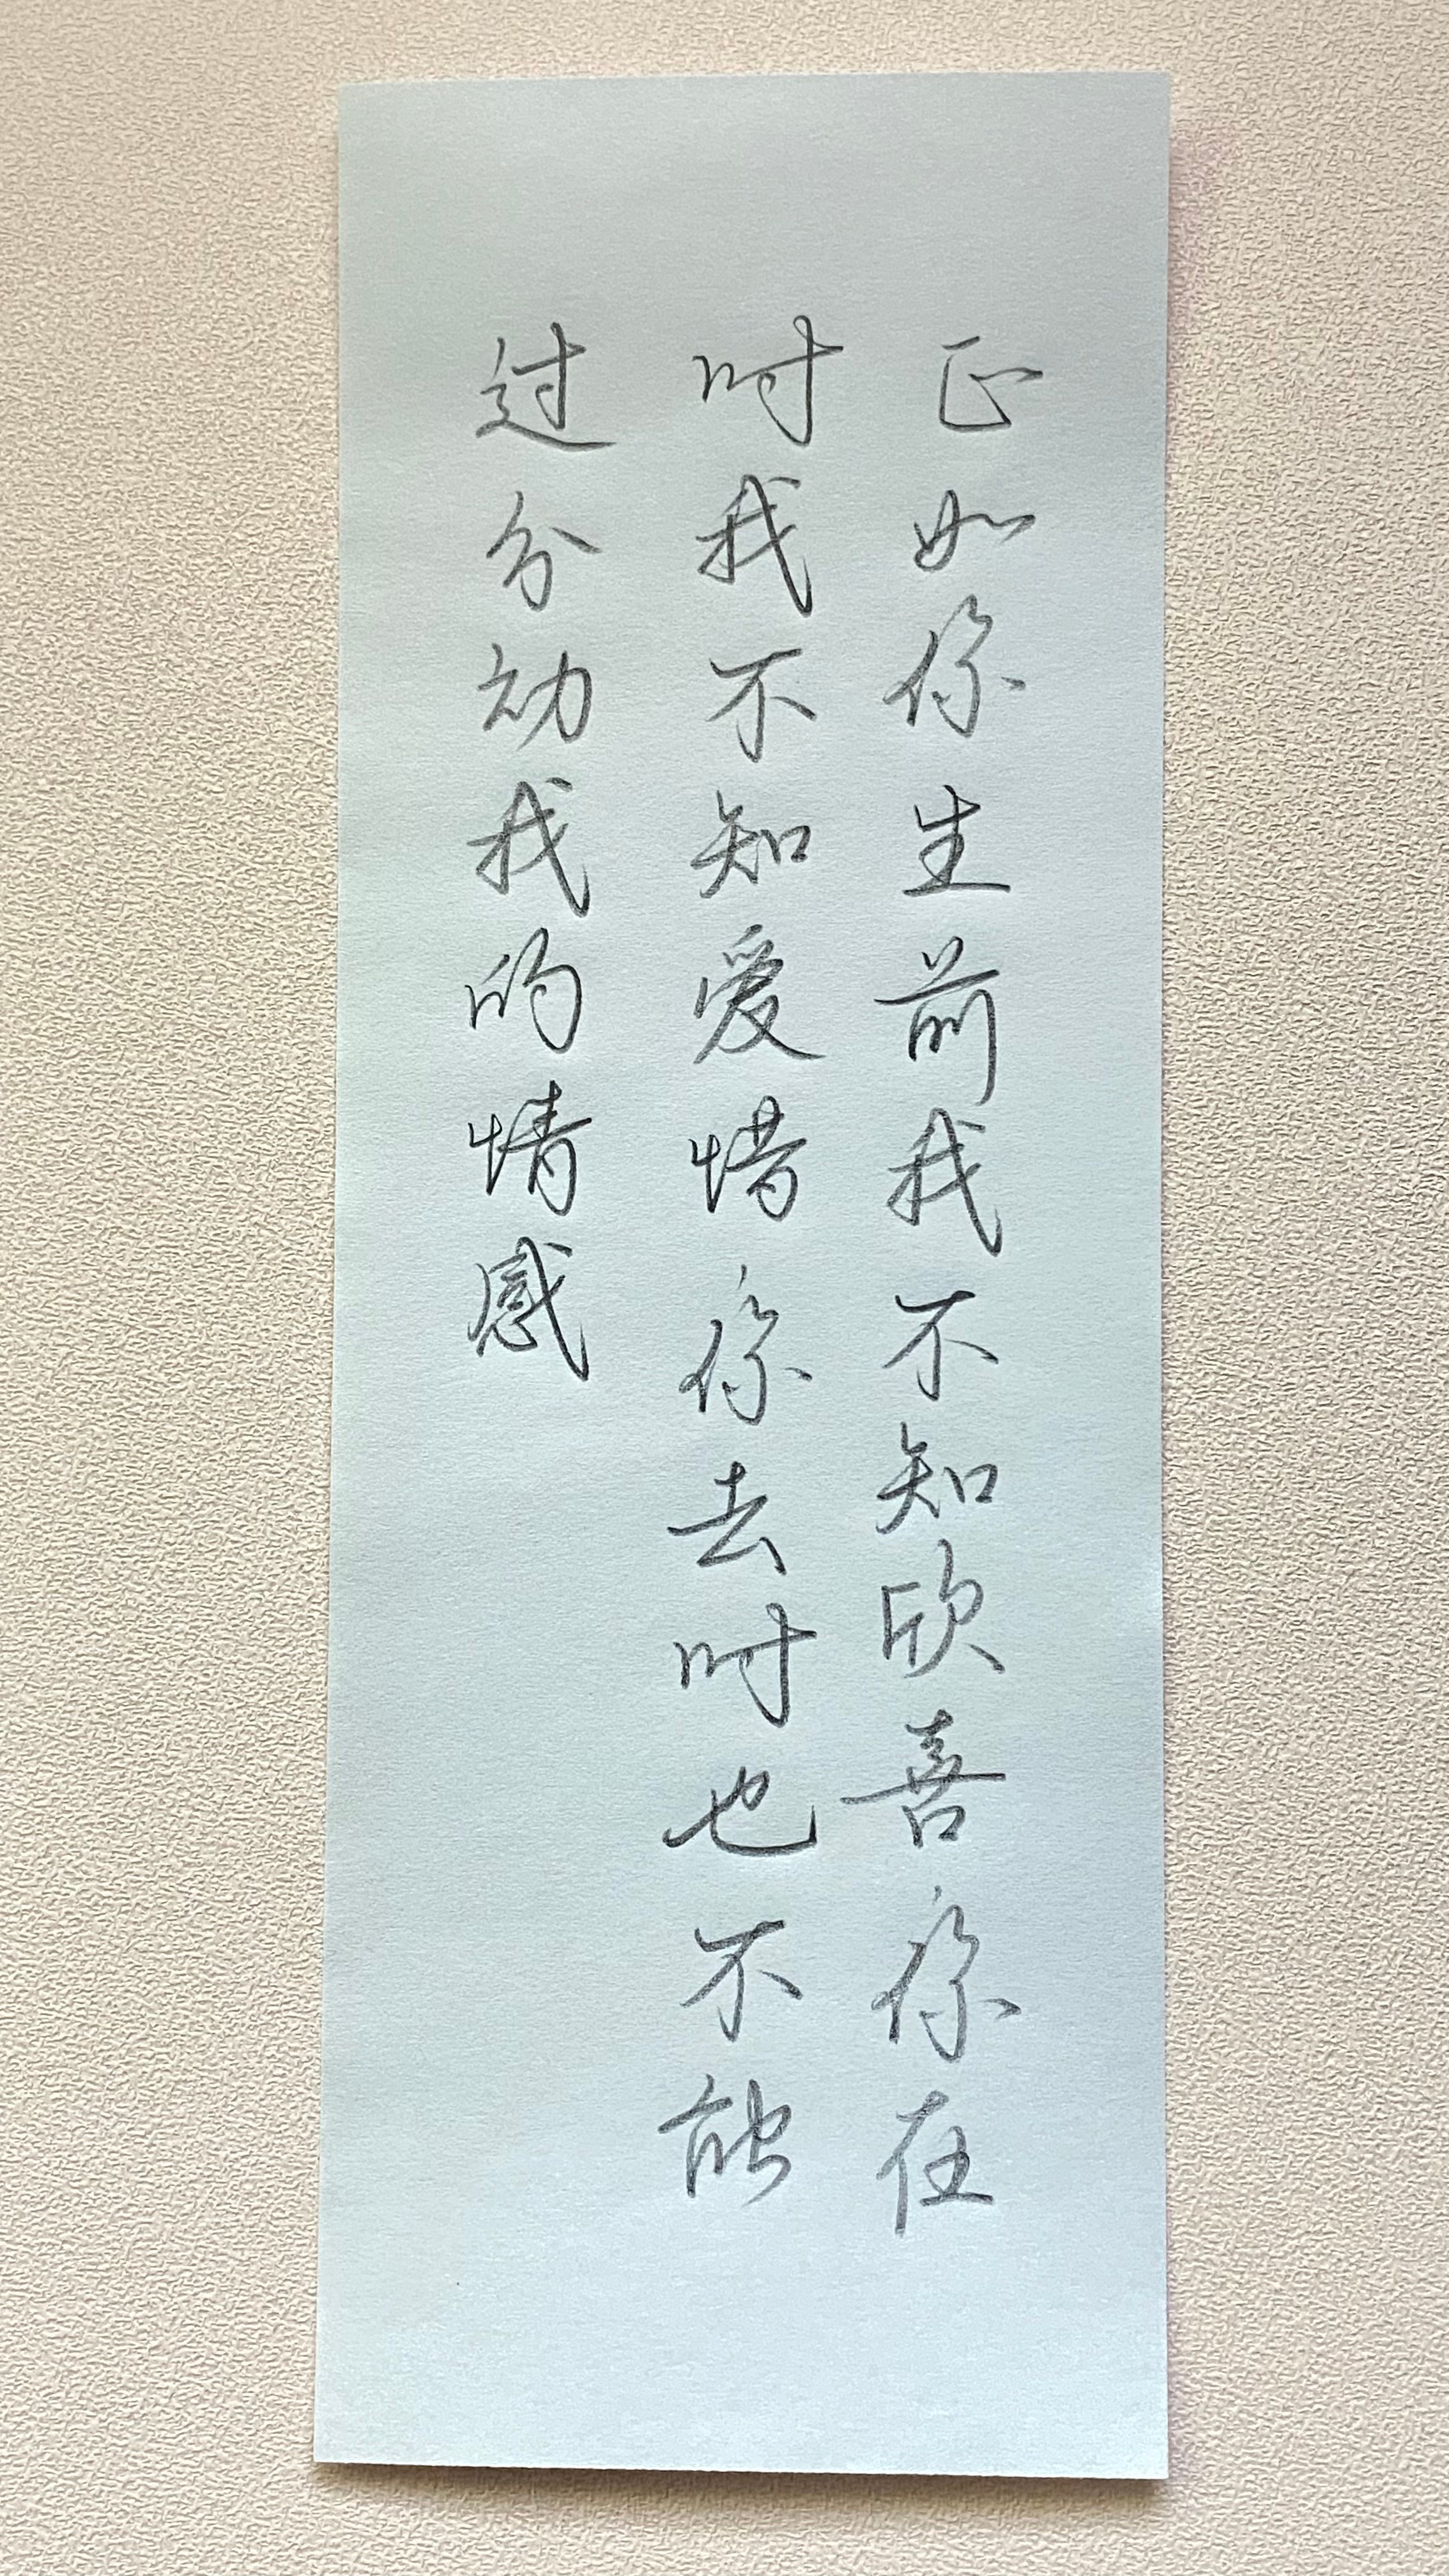 正如你生前我不知欣喜你在
时我不知爱惜你去时也不能
过分动我的情感